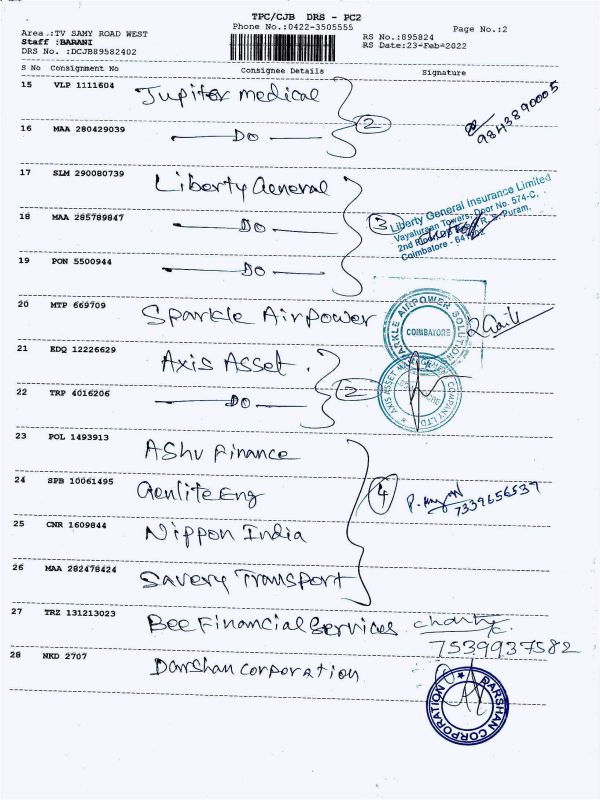 TPC/CJB DRS - PC2
Phone No.:0422-3505555
Page No.:2
Area.:TV SAMY ROAD WEST
Staff :BARANI
DRS No. :DCJB89582402
RS No.:895824
RS Date:23-Feb-2022
S No Consignment No Consignee Details Signature
15 VLP 1111604 Jupiter medical
9843890005
16 MAA 280429039 Do 2
17 SLM 290080739 Liberty General
18 MAA 285789847 Do 3
Liberty General Insurance Limited
Vayaluraan Towers, Door No. 574-C,
2nd Floor, R. S. Puram,
Coimbatore - 641002
19 PON 5500944 Do
20 MTP 669709 Sparkle Airpower
SPARKLE AIRPOWER SOLUTION
COIMBATORE
21 EDQ 12226629 Axis Asset.
22 TRP 4016206 Do 2
AXIS ASSET MANAGEMENT COMPANY LTD.
23 POL 1493913 Ashv Finance
24 SPB 10061495 Genlite Eng 4
7339656539
25 CNR 1609844 Nippon India
26 MAA 282478424 Savery Transport
27 TRZ 131213023 Bee Financial Services
7539937582
28 NKD 2707 Darshan corporation
DARSHAN CORPORATION